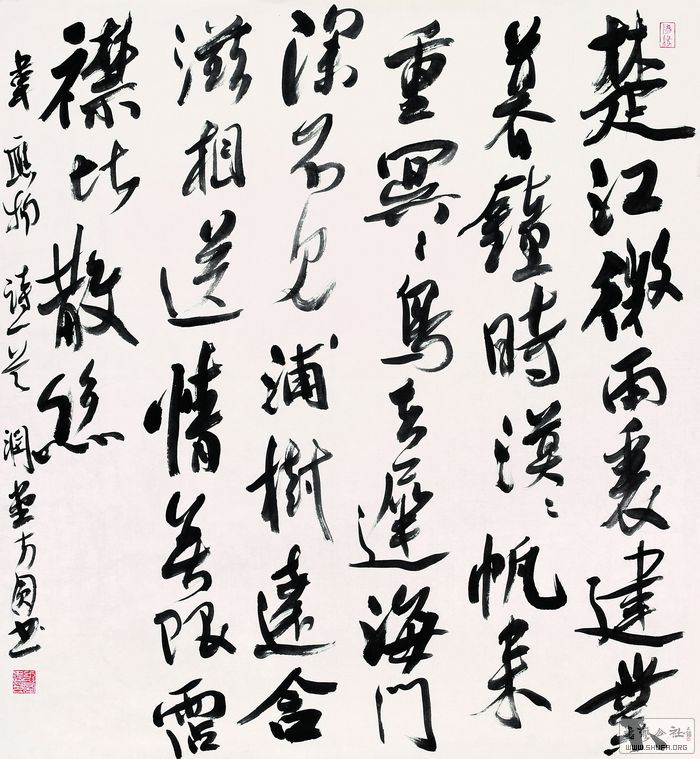 楚江微雨裏建業
暮鐘時漠〻帆來
重冥〻鳥去遲海門
深不見浦樹遠含
滋相送情無限霑
襟比散絲
韋應物詩一首潤堂方圓書
WWW.SHUFA.ORG